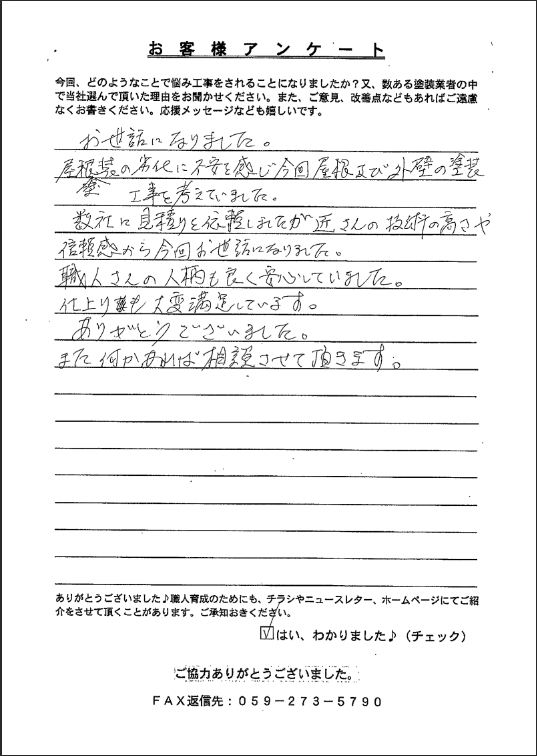 お客様アンケート
今回、どのようなことで悩み工事をされることになりましたか？又、数ある塗装業者の中
で当社選んで頂いた理由をお聞かせください。また、ご意見、改善点などもあればご遠慮
なくお書きください。応援メッセージなども嬉しいです。
お世話になりました。
屋根装の劣化に不安を感じ今回屋根及び外壁の塗装
塗 工事を考えていました。
数社に見積りを依頼しましたが近さんの技術の高さや
信頼感から今回お世話になりました。
職人さんの人柄も良く安心していました。
仕上りも大変満足しています。
ありがとうございました。
また何かあれば相談させて頂きます。
ありがとうございました♪職人育成のためにも、チラシやニュースレター、ホームページにてご紹
介をさせて頂くことがあります。ご承知おきください。
☑はい、わかりました♪（チェック）
ご協力ありがとうございました。
ＦＡＸ返信先：０５９－２７３－５７９０